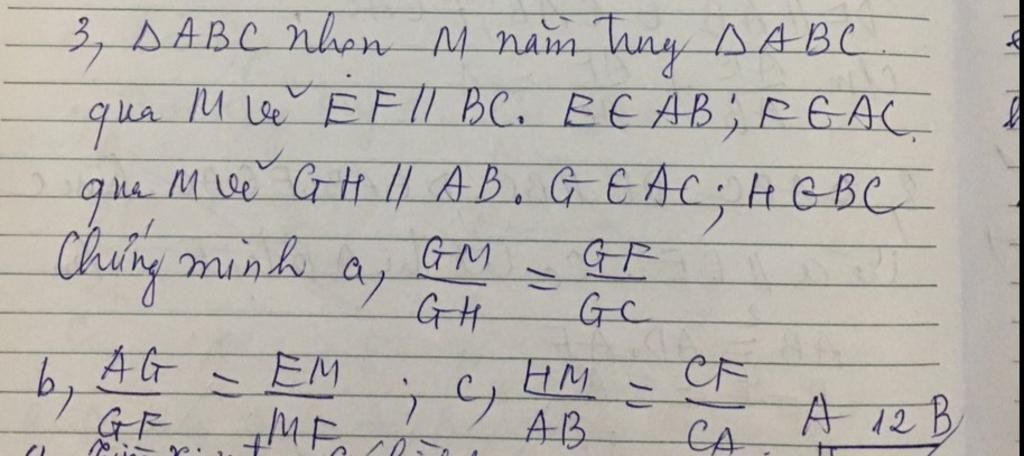 3, ΔABC nhọn M nằm trong ΔABC.
qua M vẽ EF // BC. E ∈ AB; F ∈ AC.
qua M vẽ GH // AB. G ∈ AC; H ∈ BC
Chứng minh a, GM/GH = GF/GC
b, AG/GF = EM/MF ; c, HM/AB = CF/CA.
A 12 B